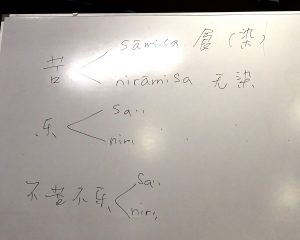 苦
sāmisa 属 (染)
nirāmisa 无染
乐
Sa..
niri
不苦不乐
Sa..
niri